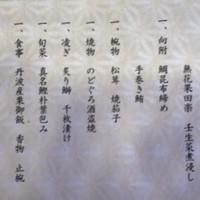 無花果田楽　壬生菜煮浸し
一、向附　鯛昆布締め
手巻き鮪
一、椀物　松茸　焼茄子
一、焼物　のどぐろ酒盗焼
一、凌ぎ　炙り鰤　千枚漬け
一、旬菜　真名鰹朴葉包み
一、食事　丹波産栗御飯　香物　止椀